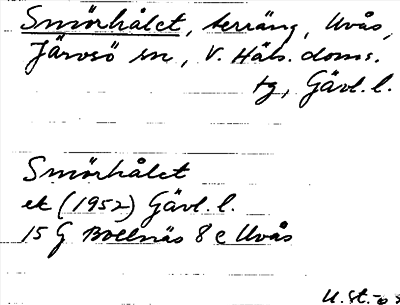 Smörhålet, terräng, Uvås,
Järvsö sn, V. Häls. doms.
tg, Gävl. l.
Smörhålet
ek (1952) Gävl. l.
15 G Bollnäs 8 c Uvås
U. St.